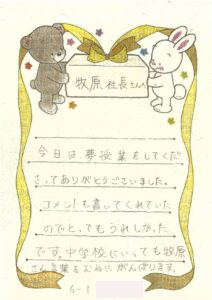 牧原社長さんへ
今日は、夢授業をしてくだ
さってありがとうございました。
コメントも書いてくれていた
のでとってもうれしかった
です。中学校にいっても牧原
さん言葉をむねにがんばります。
6-1